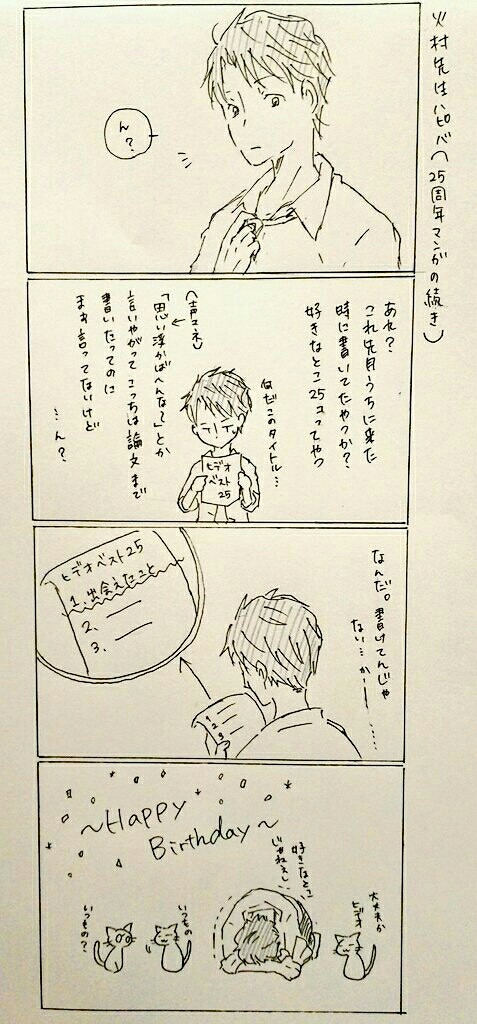 火村先生ハピバ(25周年マンガの続き)
ん?
あれ?
これ先月うちに来た
時に書いてたやつか?
好きなとこ25コってやつ
なだこのタイトル…
ヒデオ
ベスト
25
(声マネ)
「思い浮かばへんな〜」とか
言いやがってこっちは論文まで
書いたってのに
まぁ言ってないけど
…ん?
なんだ。書けてんじゃ
ない…か───……
ヒデオベスト25
1、出会えたこと
2.
3.
1
2
3
〜Happy
Birthday〜
大丈夫か
ヒデオ
好きなとこ
じゃねえし…
いつもの
いつもの?